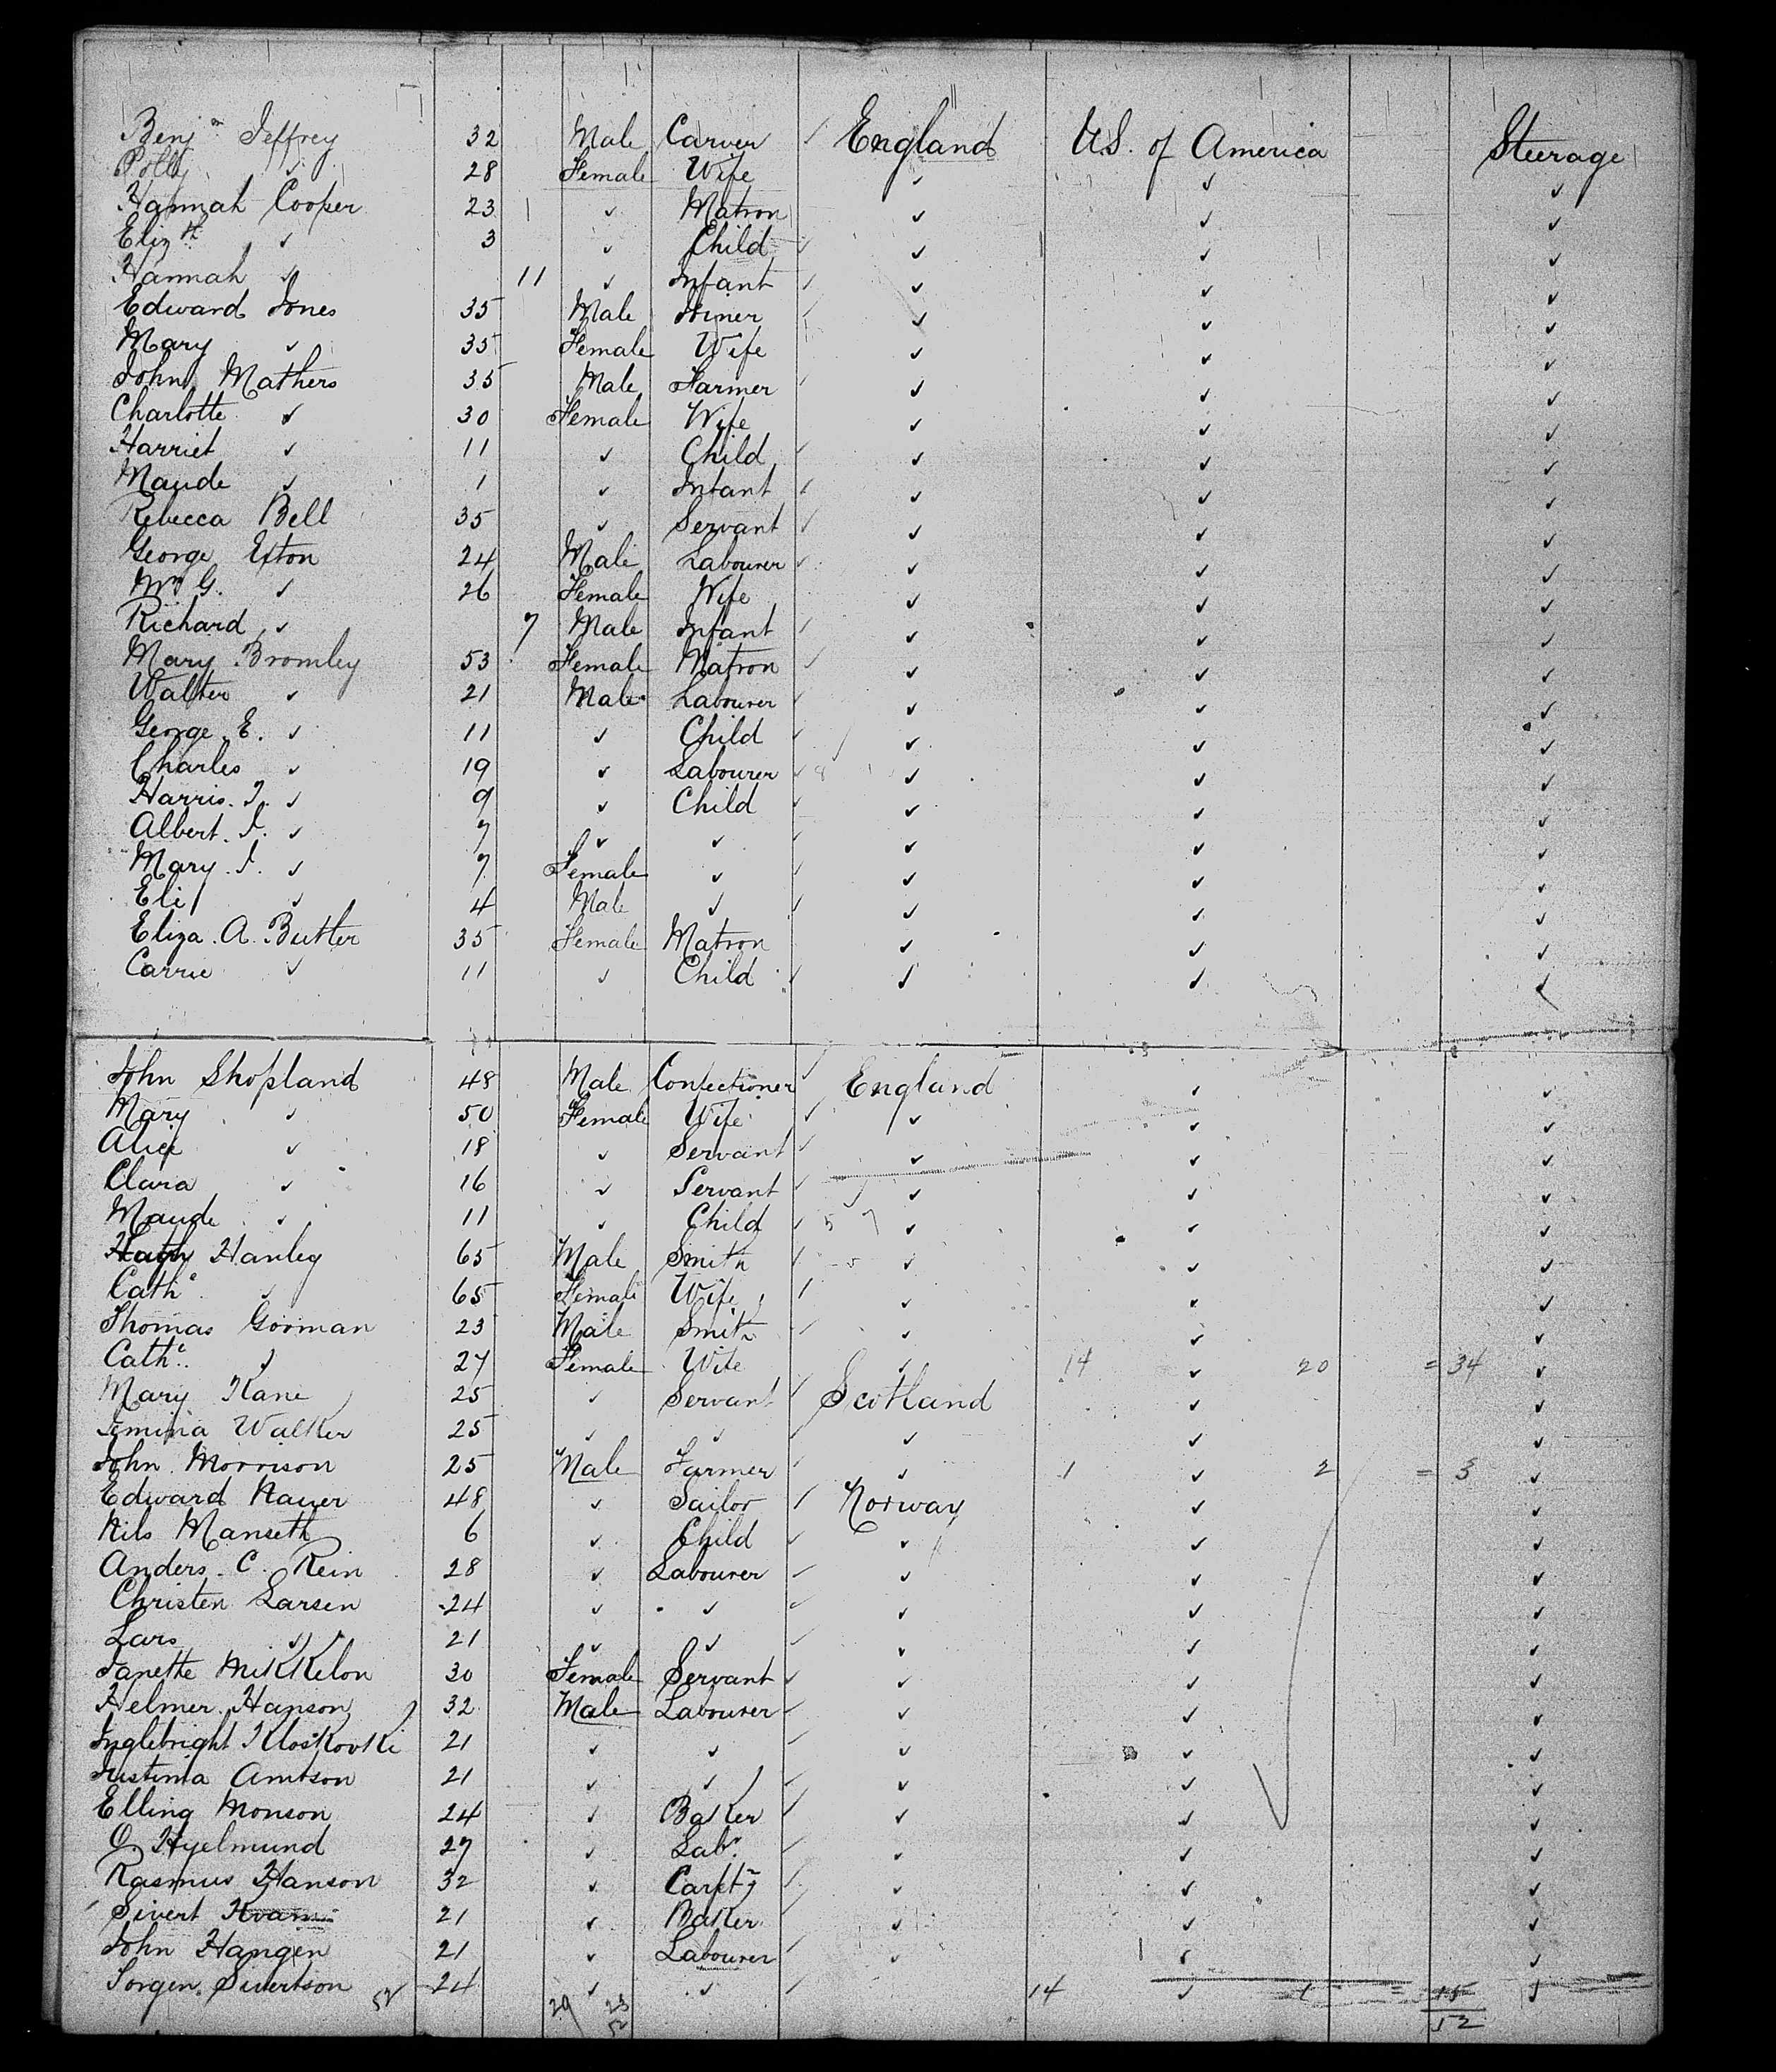 Benjn Jeffrey 32 Male Carver ✓ England U.S. of America Steerage
Polly ✓ 28 Female Wife ✓ ✓ ✓
Hannah Cooper 23 ✓ Matron ✓ ✓ ✓
Elizth ✓ 3 ✓ Child ✓ ✓ ✓ ✓
Hannah ✓ 11 ✓ Infant ✓ ✓ ✓ ✓
Edward Jones 35 Male Joiner ✓ ✓ ✓ ✓
Mary ✓ 35 Female Wife ✓ ✓ ✓
John Mathers 35 Male Farmer ✓ ✓ ✓ ✓
Charlotte ✓ 30 Female Wife ✓ ✓ ✓
Harriet ✓ 11 ✓ Child ✓ ✓ ✓ ✓
Maude ✓ 1 ✓ Infant ✓ ✓ ✓ ✓
Rebecca Bell 35 ✓ Servant ✓ ✓ ✓ ✓
George Efton 24 Male Labourer ✓ ✓ ✓ ✓
Mrs G. ✓ 26 Female Wife ✓ ✓ ✓
Richard ✓ 7 Male Infant ✓ ✓ ✓ ✓
Mary Bromley 53 Female Matron ✓ ✓ ✓ ✓
Walter ✓ 21 Male Labourer ✓ ✓ ✓ ✓
George E. ✓ 11 ✓ Child ✓ ✓ ✓ ✓
Charles ✓ 19 ✓ Labourer ✓ ✓ ✓ ✓
Harris. J. ✓ 9 ✓ Child ✓ ✓ ✓ ✓
Albert. J. ✓ 7 ✓ ✓ ✓ ✓ ✓ ✓
Mary. J. ✓ 7 Female ✓ ✓ ✓ ✓ ✓
Eli ✓ 4 Male ✓ ✓ ✓ ✓ ✓
Eliza. A. Butler 35 Female Matron ✓ ✓ ✓
Carrie ✓ 11 ✓ Child ✓ ✓ ✓ ✓
John Shopland 48 Male Confectioner ✓ England ✓ ✓
Mary ✓ 50 Female Wife ✓ ✓ ✓ ✓
Alice ✓ 18 ✓ Servant ✓ ✓ ✓ ✓
Clara ✓ 16 ✓ Servant ✓ ✓ ✓ ✓
Maude ✓ 11 ✓ Child ✓ ✓ ✓ ✓
Hanley 65 Male Smith ✓ ✓ ✓ ✓
Cathe ✓ 65 Female Wife ✓ ✓ ✓ ✓
Thomas Gorman 23 Male Smith ✓ ✓ ✓ ✓
Cathe ✓ 27 Female Wife ✓ 14 ✓ 20 = 34 ✓
Mary Kane 25 ✓ Servant ✓ Scotland ✓ ✓
Jemima Walker 25 ✓ ✓ ✓ ✓ ✓ ✓
John Morrison 25 Male Farmer ✓ ✓ 1 ✓ 2 = 3 ✓
Edward Nauer 48 ✓ Sailor ✓ Norway ✓ ✓
Nils Manseth 6 ✓ Child ✓ ✓ ✓ ✓
Anders. C. Rein 28 ✓ Labourer ✓ ✓ ✓ ✓
Christen Larsen 24 ✓ ✓ ✓ ✓ ✓ ✓
Lars ✓ 21 ✓ ✓ ✓ ✓ ✓ ✓
Janette Mikkelon 30 Female Servant ✓ ✓ ✓ ✓
Helmer Hanson 32 Male Labourer ✓ ✓ ✓ ✓
Inglebright Kloskovki 21 ✓ ✓ ✓ ✓ ✓ ✓
Justinia Amtson 21 ✓ ✓ ✓ ✓ ✓ ✓
Elling Monson 24 ✓ Baker ✓ ✓ ✓ ✓
O. Hyelmund 27 ✓ Labr. ✓ ✓ ✓ ✓
Rasmus Hanson 32 ✓ ✓ ✓ ✓ ✓
Sivert Kvam 21 ✓ Baker ✓ ✓ ✓ ✓
John Hangen 21 ✓ Labourer ✓ ✓ ✓ ✓
Jorgen Sivertson 52 24 ✓ ✓ ✓ 14 ✓ 1 = 15 ✓
29 23 52 52